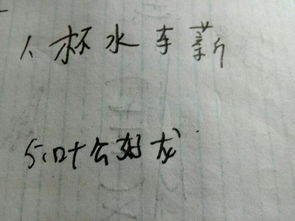 1、杯水车薪
5、叶公好龙